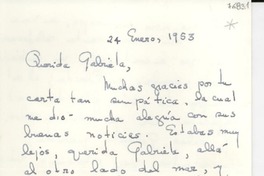 24 Enero, 1953
Querida Gabriela,
Muchas gracias por tu
carta tan simpática, la cual
me dió mucha alegría con sus
buenas noticias. Estabas muy
lejos, querida Gabriela, allá
al otro lado del mar, y